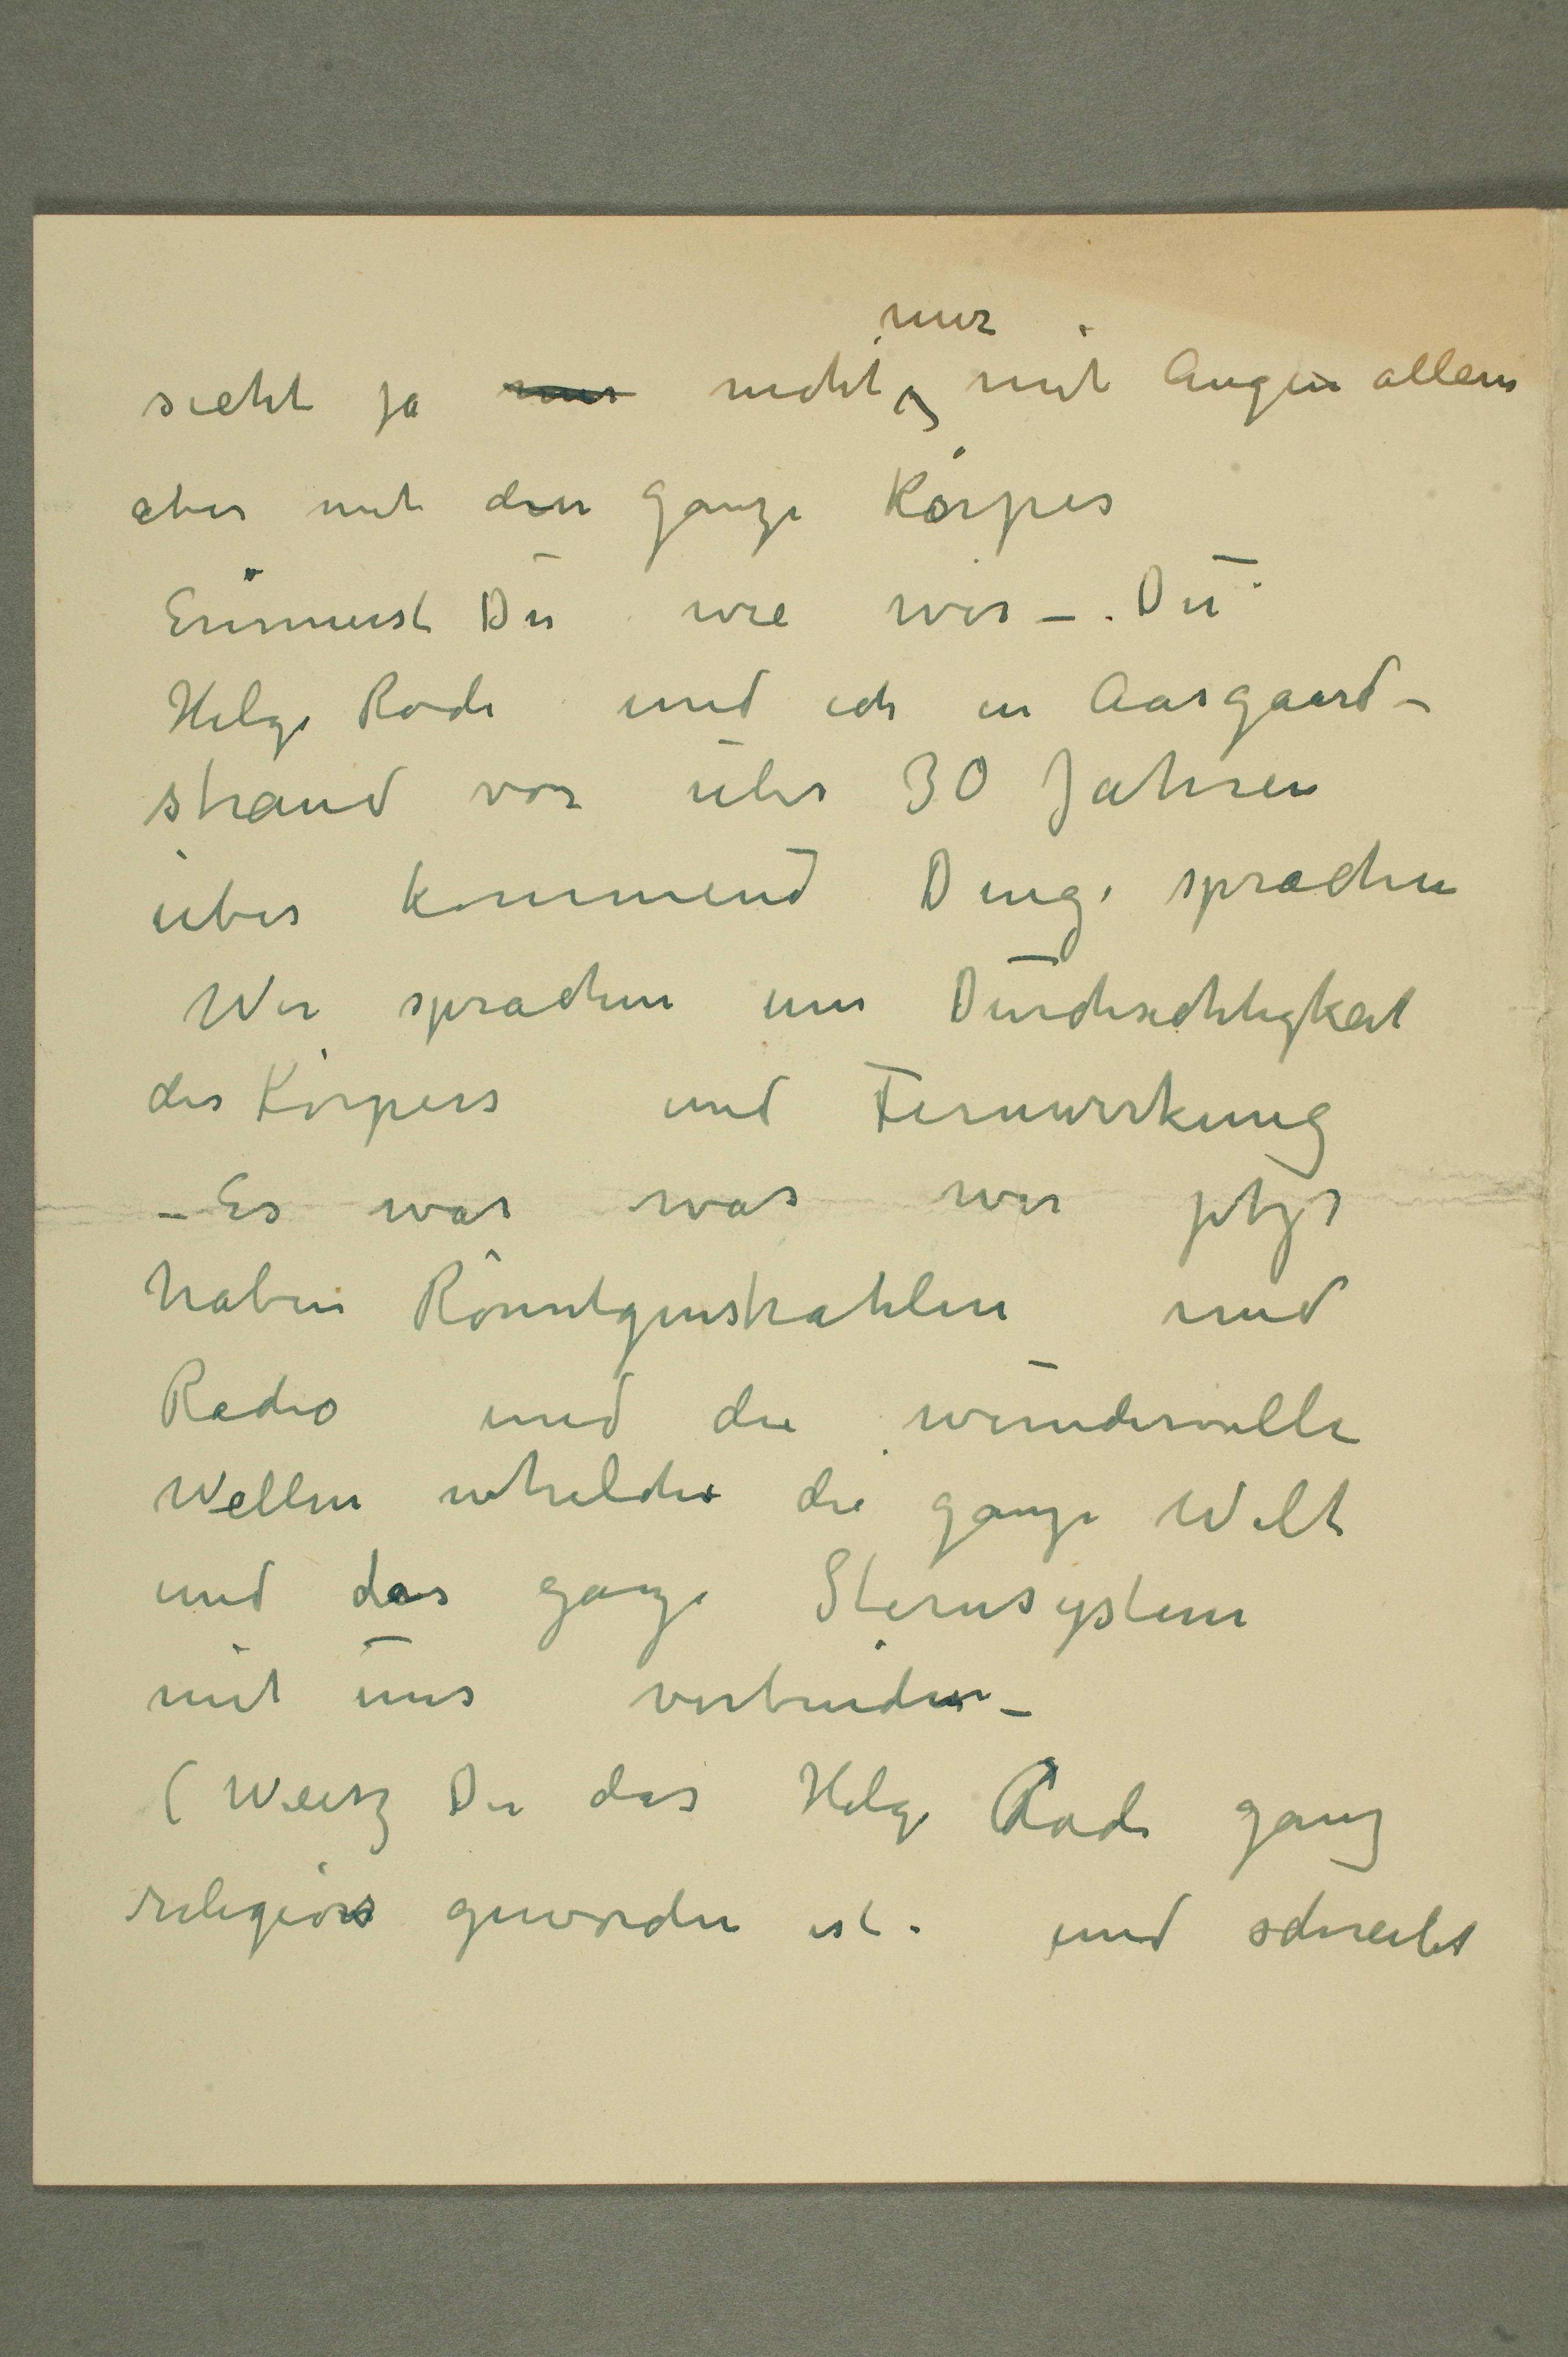 sieht ja nur nicht nur mit Augen allein
aber mit den ganze Körper
Erinnerst Du wie wir – Du
Helge Rode und ich in Aasgaard-
strand vor über 30 Jahren
über kommend Dinge sprachen
Wir sprachen um Durchsichtigkeit
des Körpers und Fernwirkung
– Es war was wir jetzt
haben Rönntgenstrahlen und
Radio und die wundervolle
Wellen whelche die ganze Welt
und das ganze Sternsystem
mit uns verbinden –
(Weisz Du das Helge Rode ganz
religiös geworden ist. und schreibt